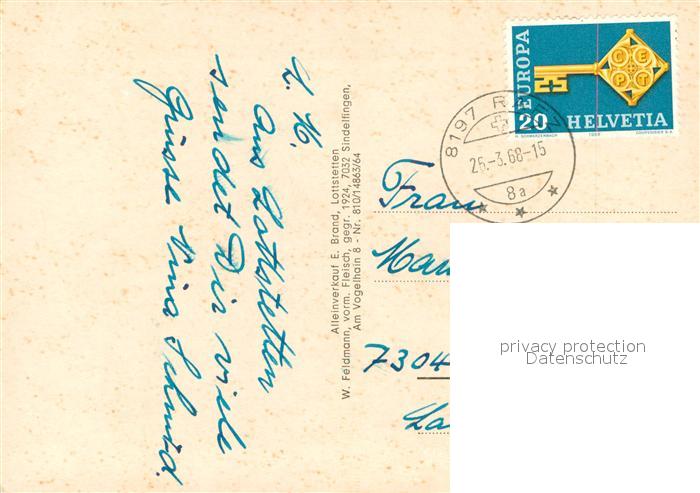 L. M.
Aus Lottstetten
sendet Dir viele
Grüsse Nina Schmid.
Alleinverkauf E. Brand, Lottstetten
W. Feldmann, vorm. Fleisch, gegr. 1924, 7032 Sindelfingen,
Am Vogelhain 8 - Nr. 810/14863/64
EUROPA
CEPT
20 HELVETIA
H. SCHWARZENBACH 1968 COURVOISIER S.A.
8197 RAFZ
26.-3.68-15
8a
Frau
7304
privacy protection
Datenschutz